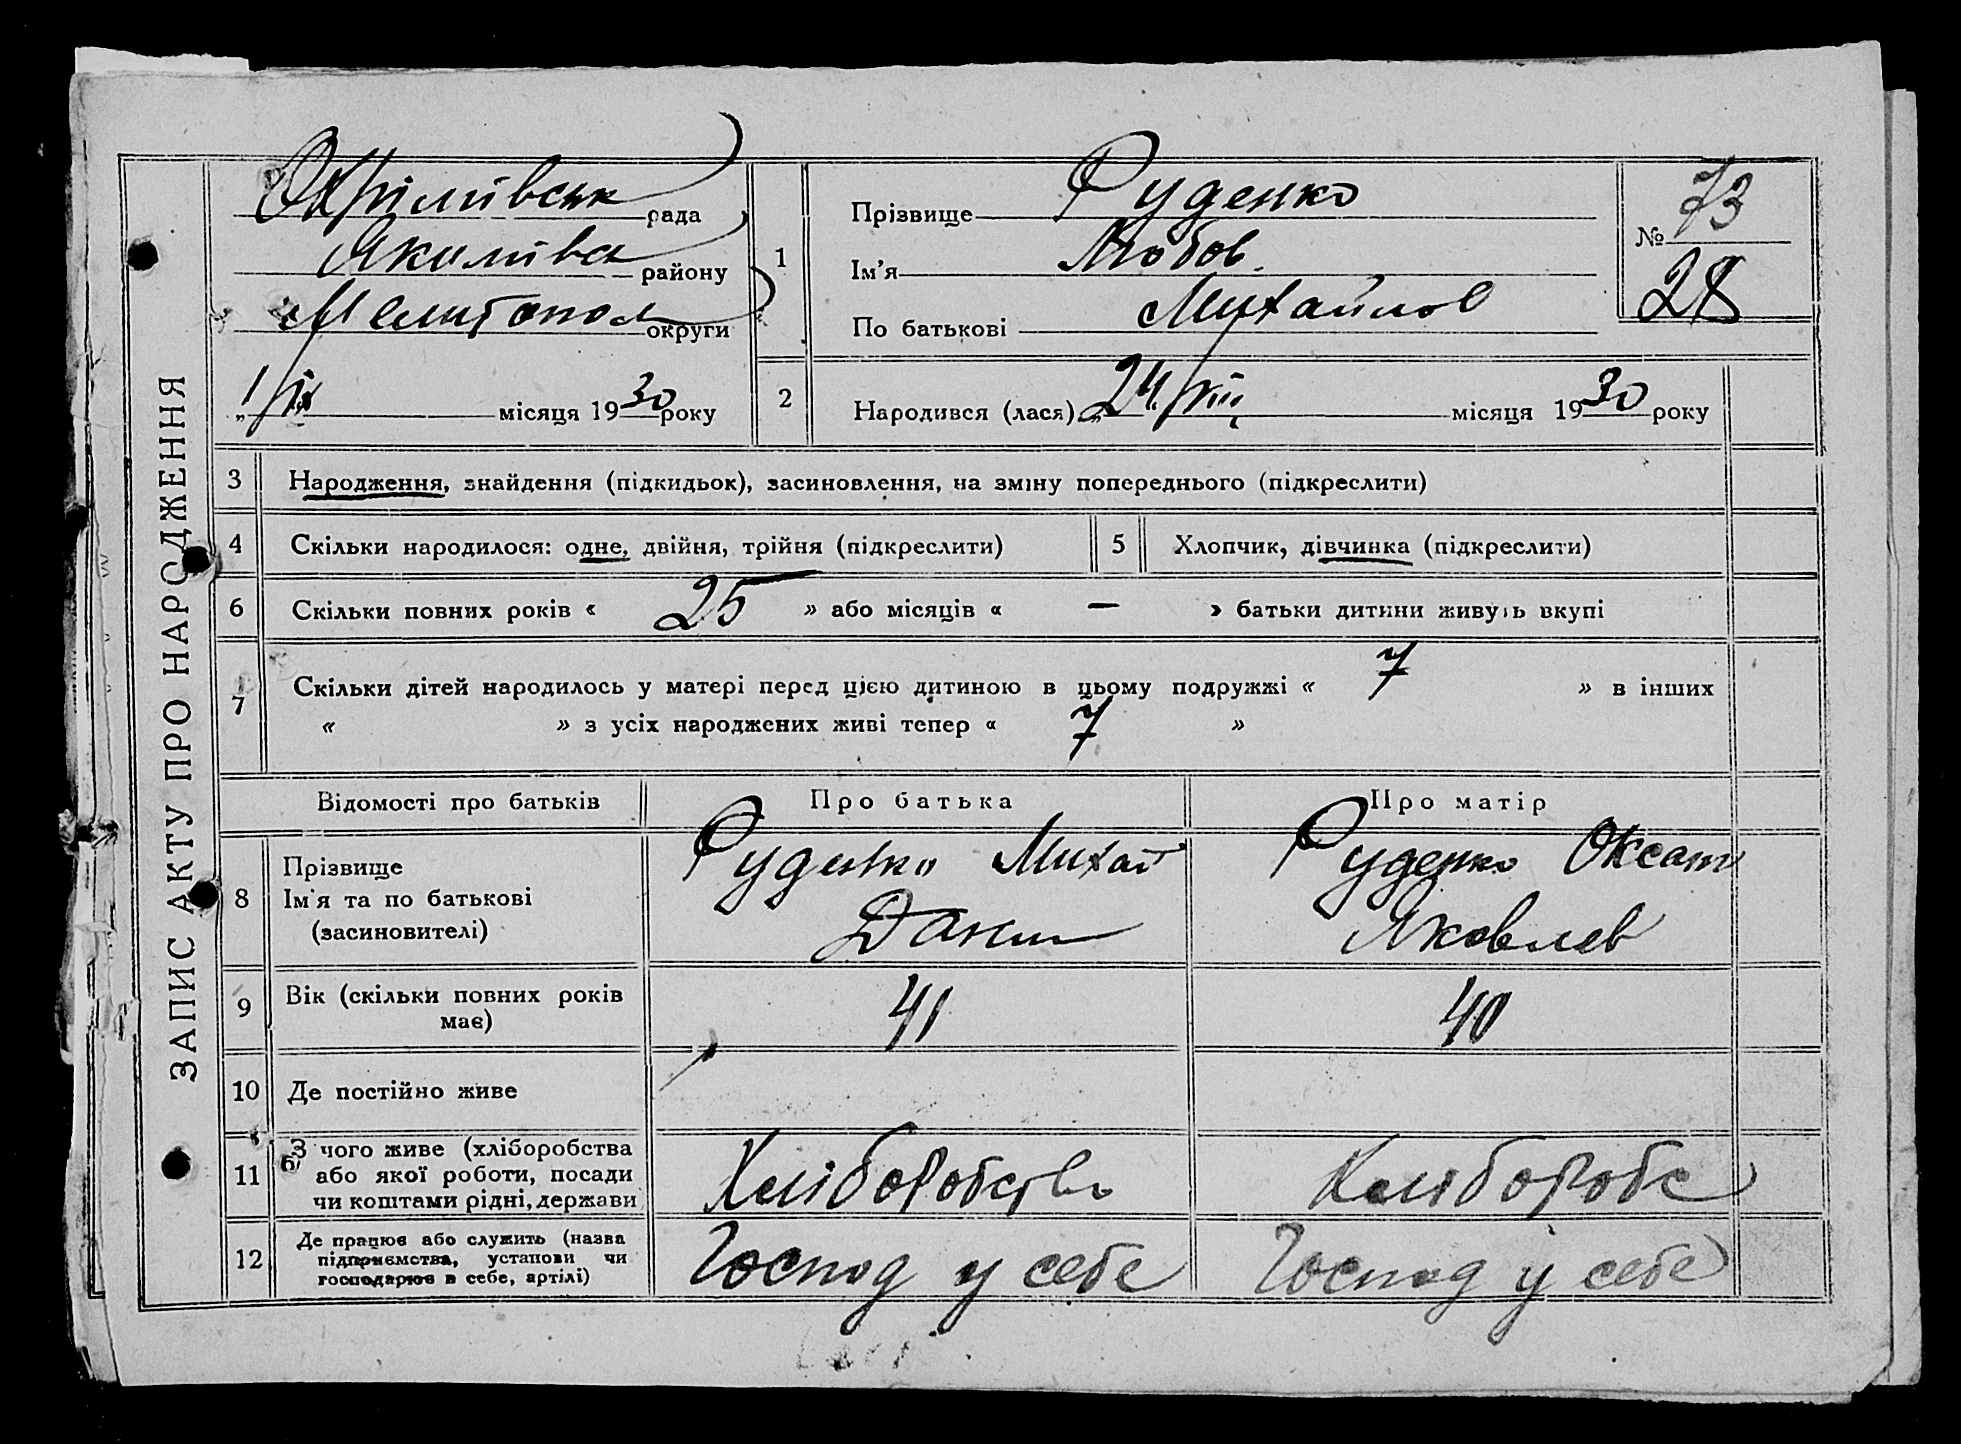 ЗАПИС АКТУ ПРО НАРОДЖЕННЯ
Охрімівськ рада
Якимівс району
Мелитопол округи
1/ІХ місяця 1930 року
1 Прізвище Руденко
Ім'я Любов
По батькові Михайлов
№ 73
28
2 Народився (лася) „24/VIII місяця 1930 року
3 Народження, знайдення (підкидьок), засиновлення, на зміну попереднього (підкреслити)
4 Скільки народилося: одне, двійня, трійня (підкреслити) 5 Хлопчик, дівчинка (підкреслити)
6 Скільки повних років « 25 » або місяців « — » батьки дитини живуть вкупі
7 Скільки дітей народилось у матері перед цією дитиною в цьому подружжі « 7 » в інших
« » з усіх народжених живі тепер « 7 »
Відомості про батьків Про батька Про матір
8 Прізвище
Ім'я та по батькові
(засиновителі)
Руденко Михай
Данил
Руденко Оксан
Яковлев
9 Вік (скільки повних років
має)
41 40
10 Де постійно живе
11 З чого живе (хліборобства
або якої роботи, посади
чи коштами рідні, держави
Хліборобство Хлібороб
12 Де працює або служить (назва
підприємства, установи чи
господарює в себе, артілі)
Господ у себе Господ у себе